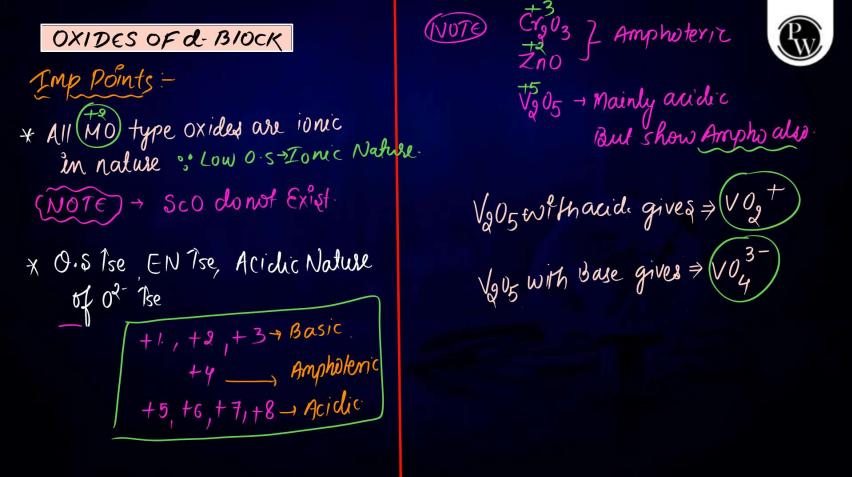 OXIDES OF d-BLOCK
Imp Points:-
+2
* All MO type oxides are ionic
in nature ∵ Low O.S→Ionic Nature.
NOTE → ScO do not Exist.
* O.S ↑se, EN ↑se, Acidic Nature
of O²⁻ ↑se
+1, +2, +3 → Basic
+4 → Amphoteric
+5, +6, +7, +8 → Acidic
NOTE
+3
Cr₂O₃
+2
ZnO
} Amphoteric
+5
V₂O₅ → Mainly acidic
But show Ampho also.
V₂O₅ with acid gives ⇒ VO₂⁺
V₂O₅ with Base gives ⇒ VO₄³⁻
PW